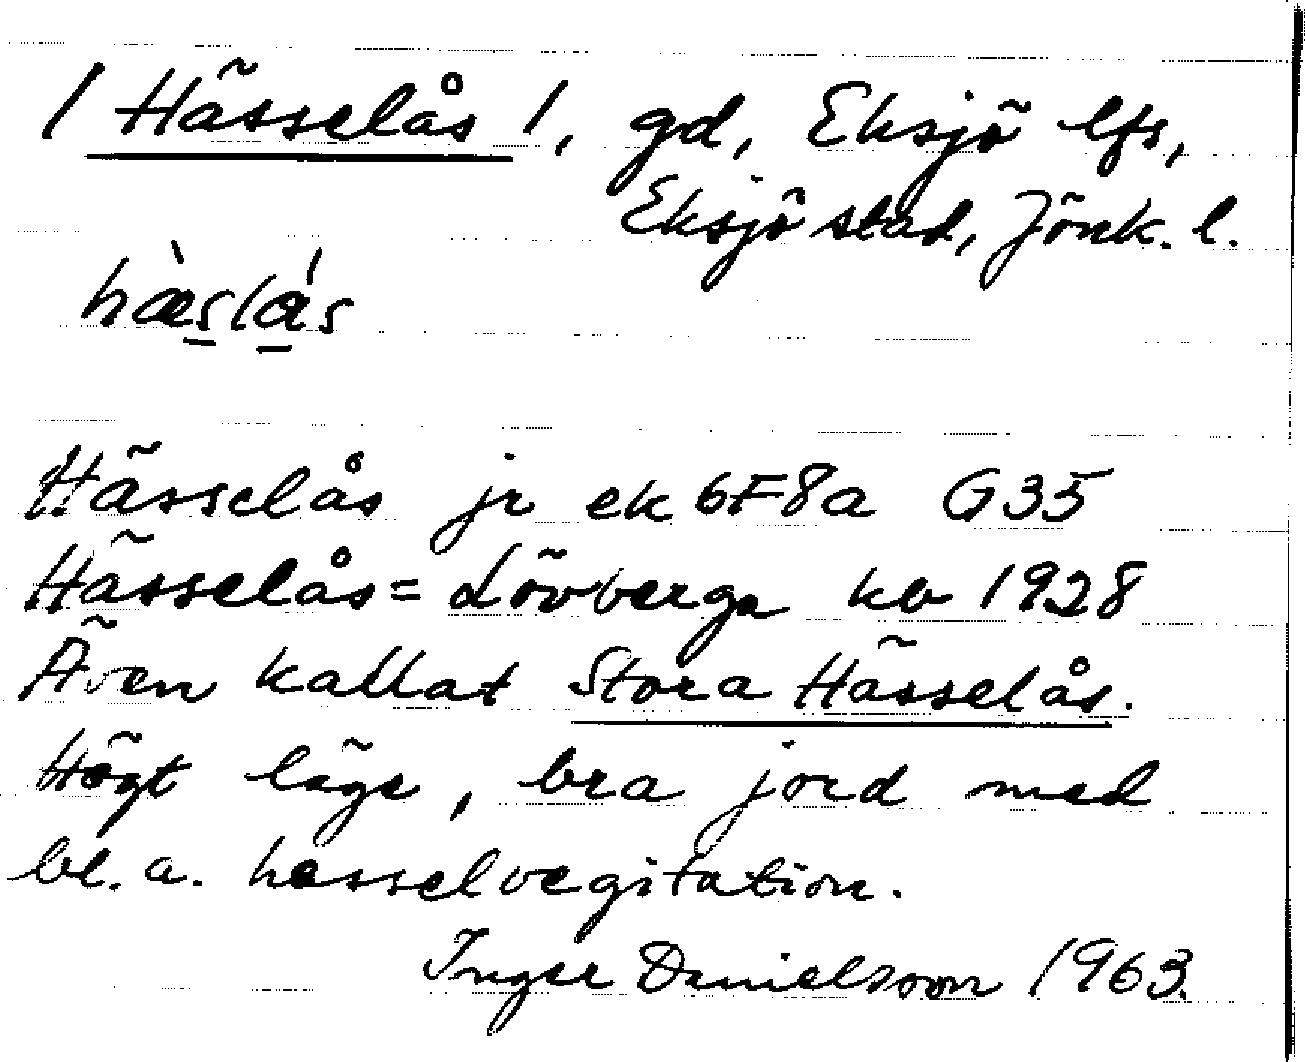 / Hässelås /, gd, Eksjö lfs,
Eksjö stad, Jönk. l.
hæ̀slås
Hässelås jr ek 6F8a G35
Hässelås = Lövberga kb 1928
Även kallat Stora Hässelås.
Högt läge, bra jord med
bl. a. hasselvegitation.
Inger Danielsson 1963.